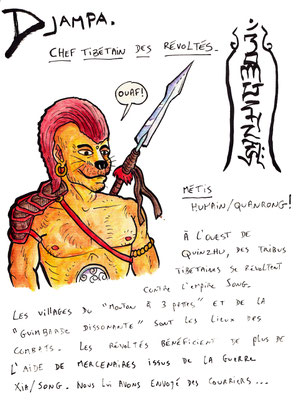 DJAMPA.
CHEF TIBÉTAIN DES RÉVOLTÉS.
OUAF!
MÉTIS
HUMAIN/QUANRONG!
À L'OUEST DE
QUINZHU, DES TRIBUS
TIBÉTAINES SE RÉVOLTENT
CONTRE L'EMPIRE SONG.
LES VILLAGES DU "MOUTON À 3 PATTES" ET DE LA
"GUIMBARDE DISSONANTE" SONT LES LIEUX DES
COMBATS. LES RÉVOLTÉS BÉNÉFICIENT DE PLUS DE
L'AIDE DE MERCENAIRES ISSUS DE LA GUERRE
XIA/SONG. NOUS LUI AVONS ENVOYÉ DES COURRIERS...